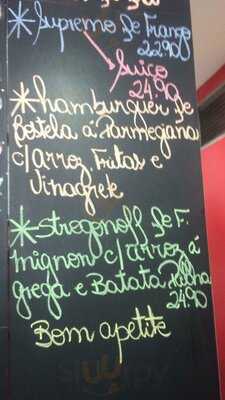 *Supremo de Frango
22.90
Suiço
24.90
*hamburguer de
Costela a Parmegiana
c/arroz Fritas e
Vinagrete
*Stregonoff de F.
mignon c/arroz á
grega e Batata Palha
24.90
Bom apetite